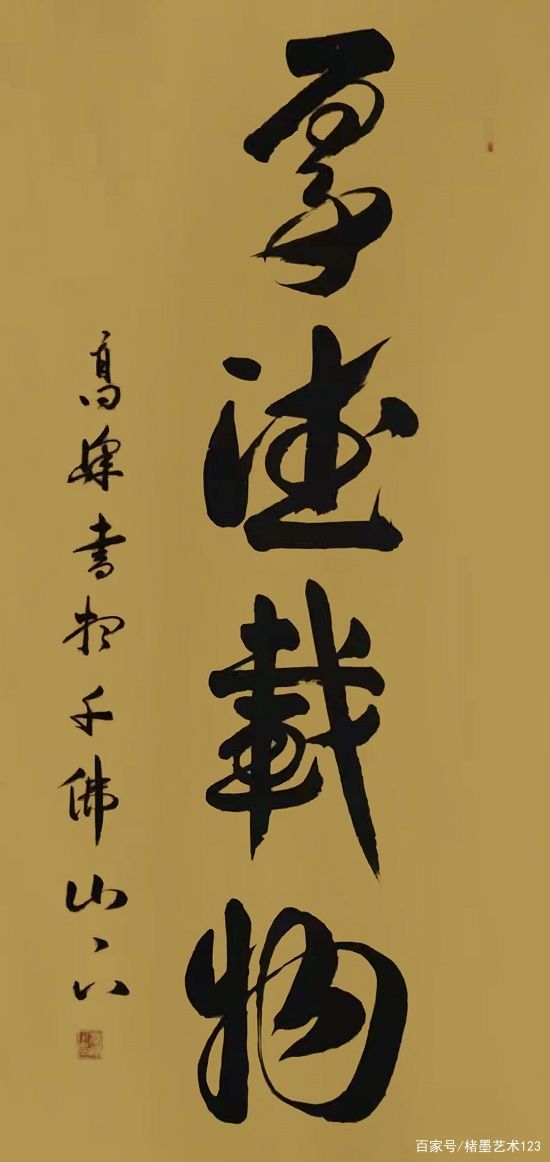 厚德載物
高書於千佛山下
百家号/楮墨艺术123